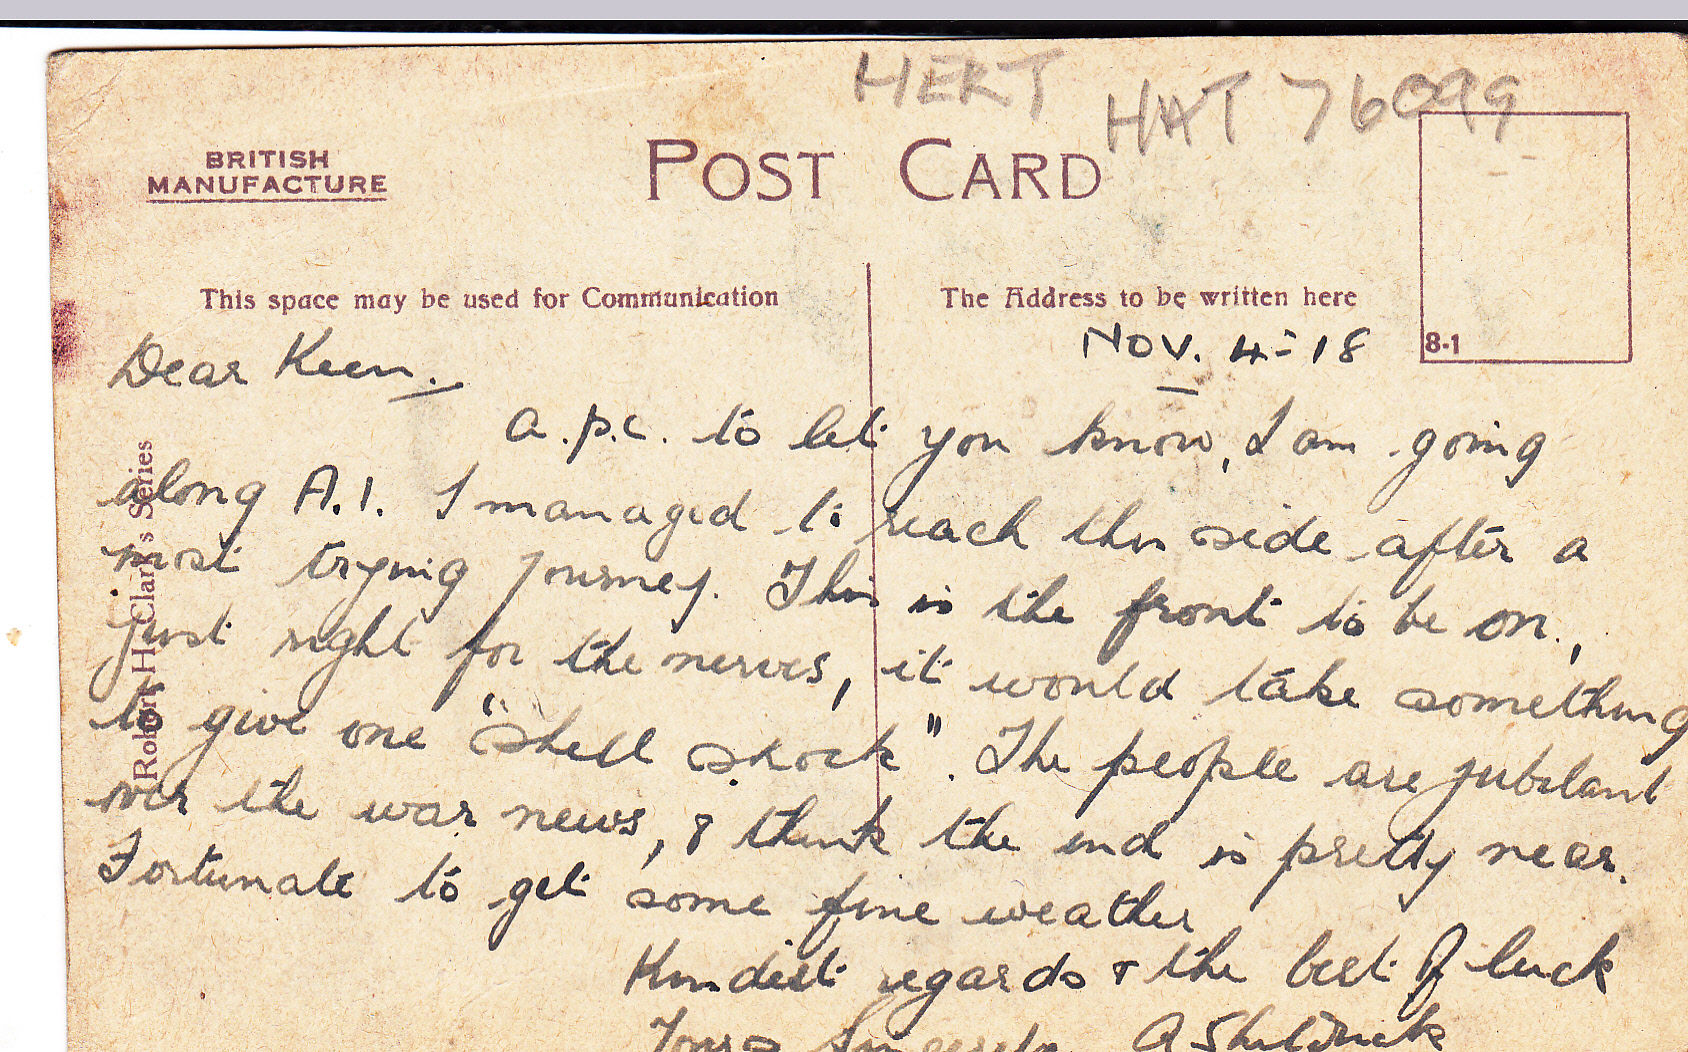 HERT HAT 76099
BRITISH
MANUFACTURE
POST CARD
This space may be used for Communication
The Address to be written here
8-1
Robert H. Clark's Series
Nov. 4-18
Dear Keen.
A.p.c. to let you know, I am going
along A.1. I managed to reach this side after a
most trying journey. This is the front to be on,
just right for the nerves, it would take something
to give one "shell shock". The people are jubilant
over the war news, & think the end is pretty near.
Fortunate to get some fine weather
Kindest regards & the best of luck
Yours Sincerely